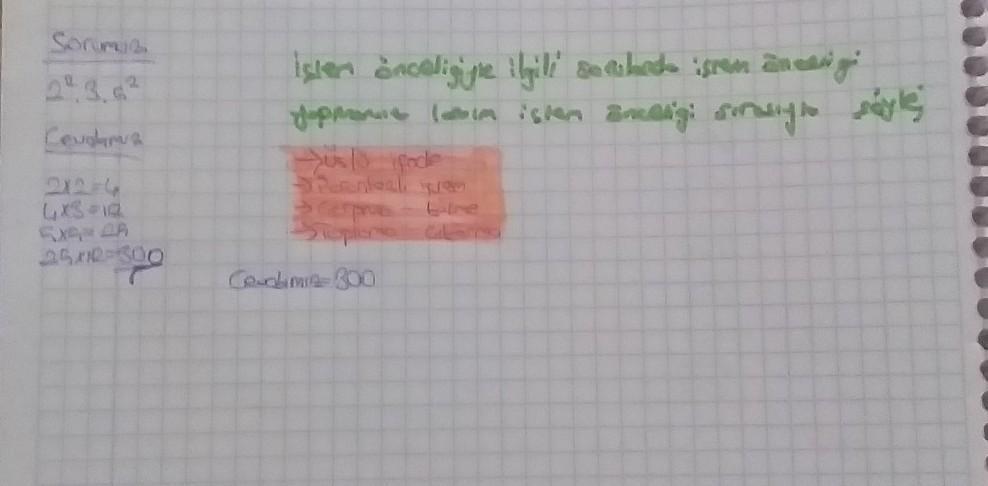 Sorumuz
2². 3. 5²
Cevabımız
2x2=4
4x3=12
5x5=25
25x12=300
İşlem önceliğiyle ilgili sorularda işlem önceliği
yapmamız lazım işlem önceliği sırasıyla şöyle;
→Üslü ifade
→Parantezli işlem
→Çarpma - bölme
→Toplama - çıkarma
Cevabımız=300